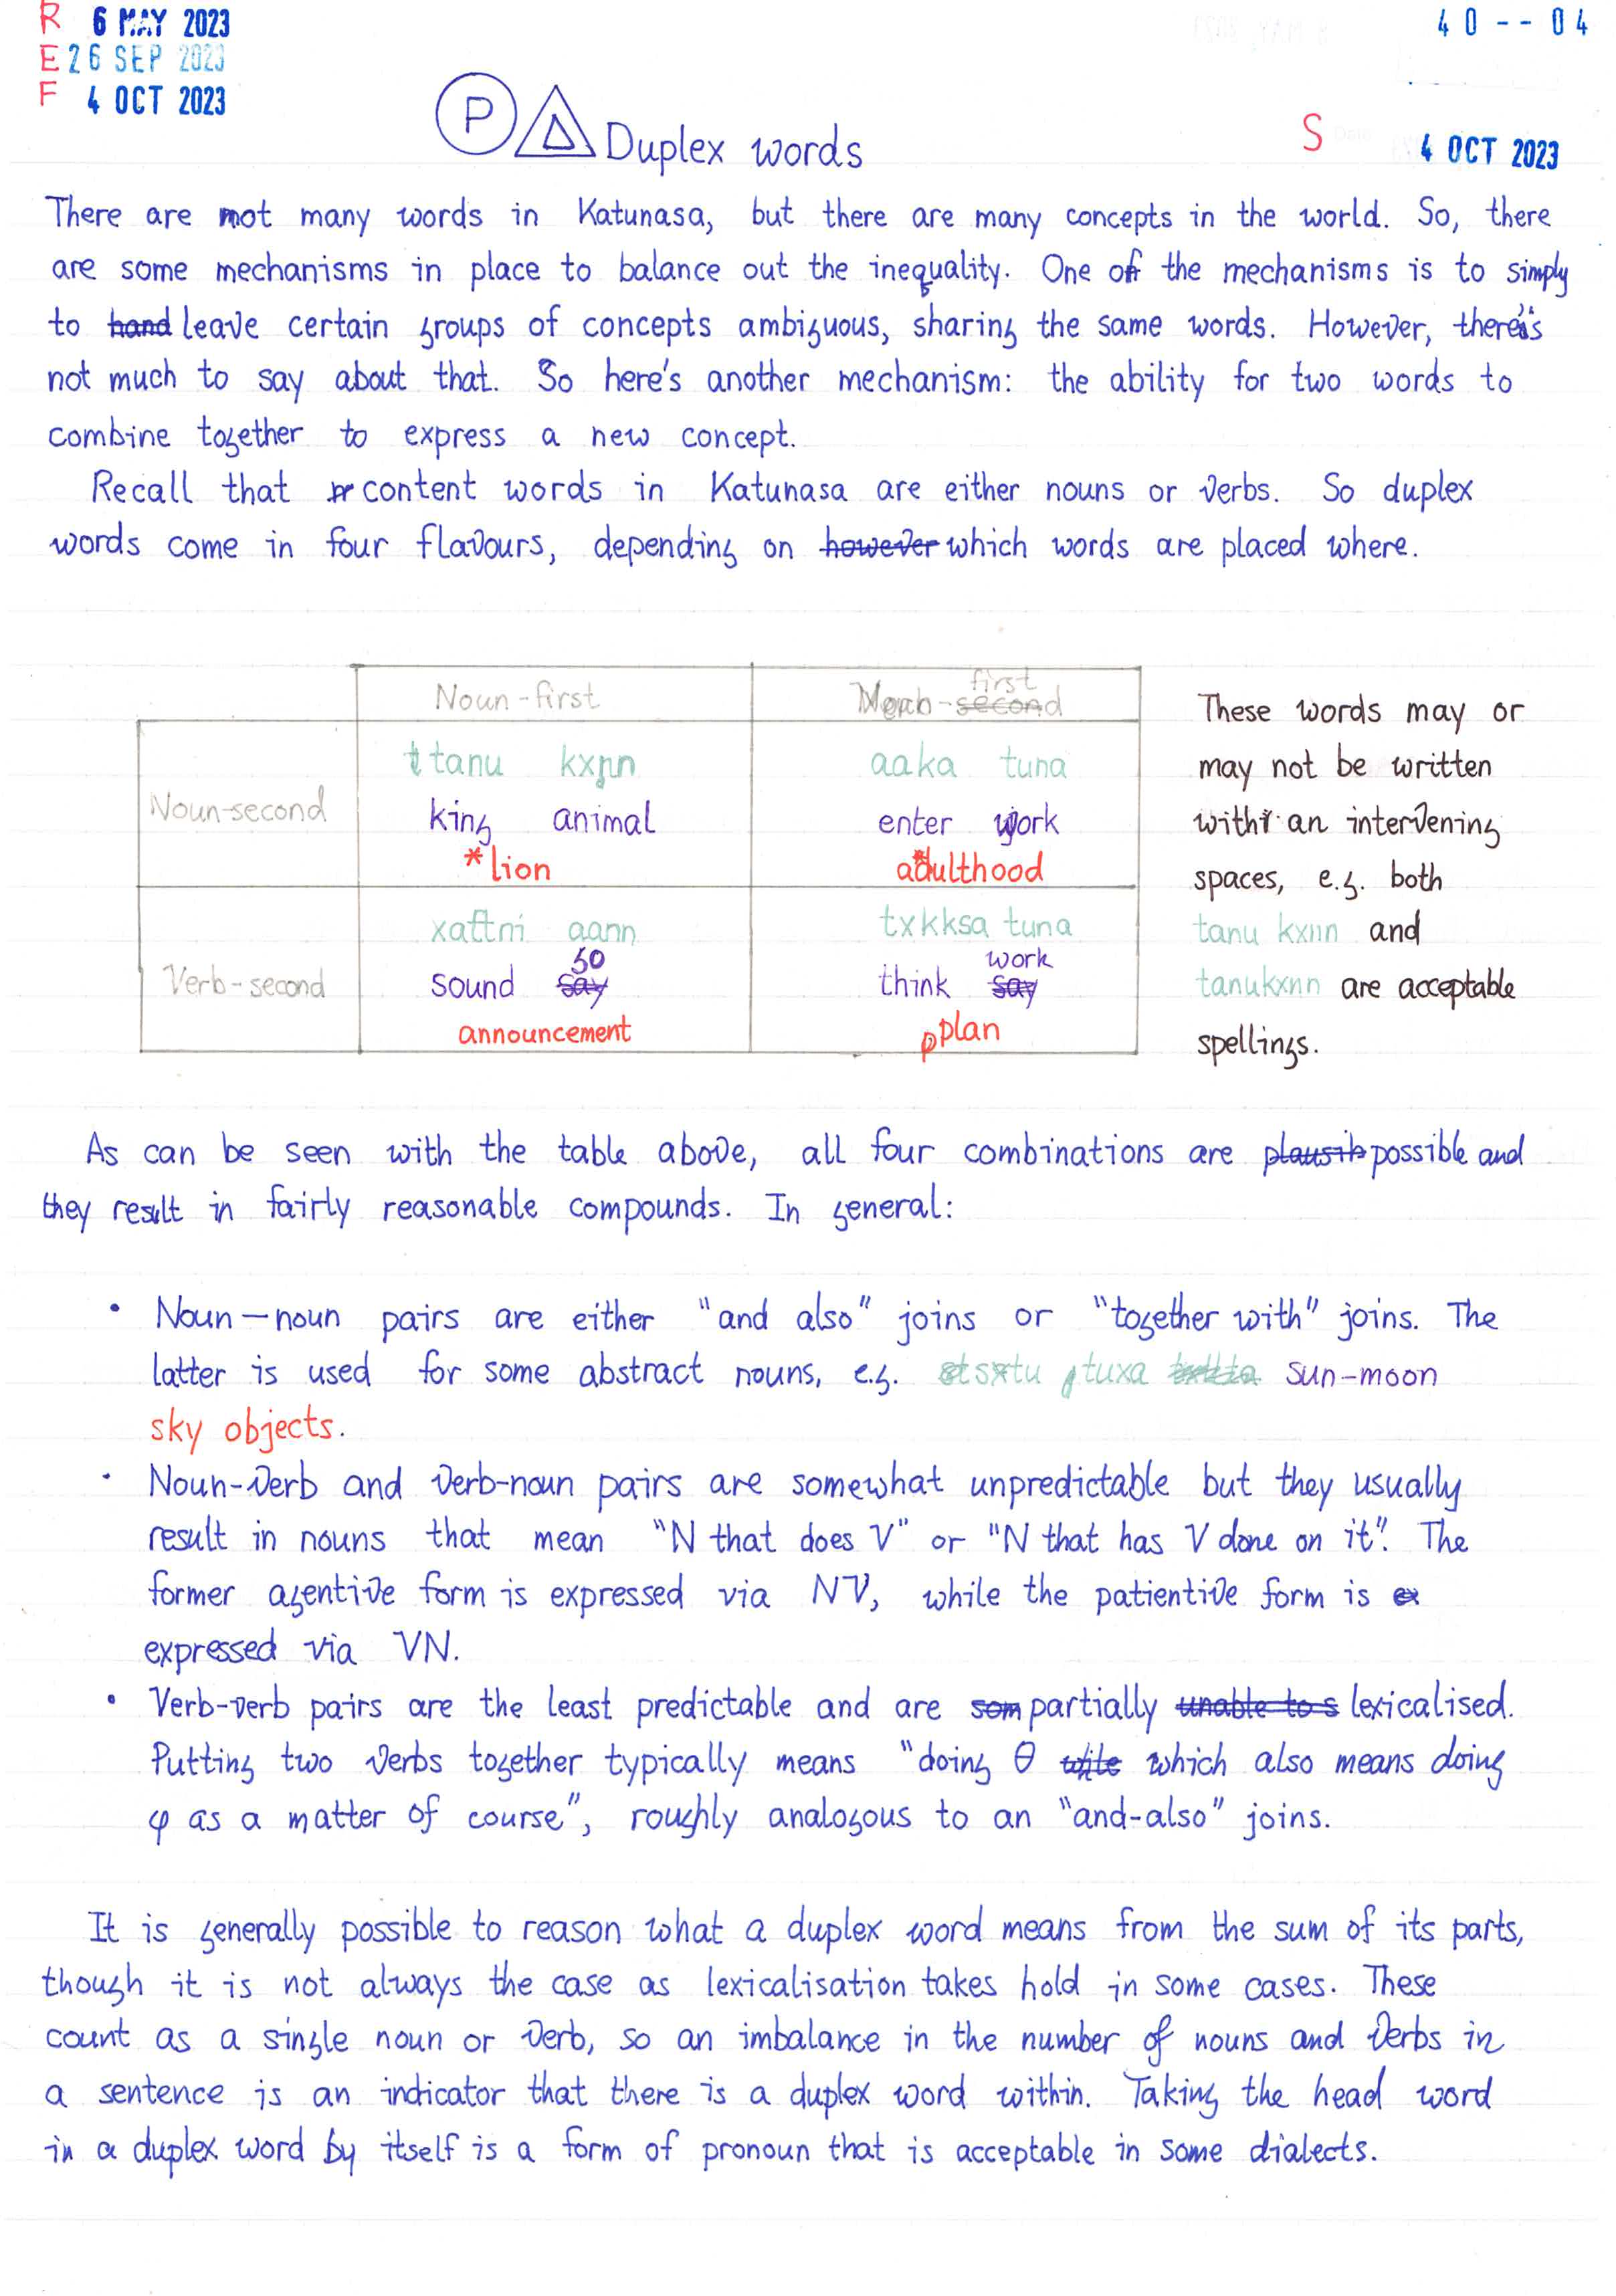 R 6 MAY 2023
E 26 SEP 2023
F 4 OCT 2023
40--04
P Δ Duplex words
S 4 OCT 2023
There are not many words in Katunasa, but there are many concepts in the world. So, there
are some mechanisms in place to balance out the inequality. One of the mechanisms is to simply
to hand leave certain groups of concepts ambiguous, sharing the same words. However, there's
not much to say about that. So here's another mechanism: the ability for two words to
combine together to express a new concept.
Recall that content words in Katunasa are either nouns or verbs. So duplex
words come in four flavours, depending on however which words are placed where.
Noun-first
Verb-second first
Noun-second
tanu kxnn
king animal
*lion
aaka tuna
enter work
*adulthood
Verb-second
xattni aann
sound say so
announcement
txkksa tuna
think say work
plan
These words may or
may not be written
with an intervening
spaces, e.g. both
tanu kxnn and
tanukxnn are acceptable
spellings.
As can be seen with the table above, all four combinations are plausib possible and
they result in fairly reasonable compounds. In general:
• Noun—noun pairs are either "and also" joins or "together with" joins. The
latter is used for some abstract nouns, e.g. tsxtu tuxa sun-moon
sky objects.
• Noun-verb and verb-noun pairs are somewhat unpredictable but they usually
result in nouns that mean "N that does V" or "N that has V done on it". The
former agentive form is expressed via NV, while the patientive form is ex
expressed via VN.
• Verb-verb pairs are the least predictable and are som partially unable to s lexicalised.
Putting two verbs together typically means "doing θ which also means doing
φ as a matter of course", roughly analogous to an "and-also" joins.
It is generally possible to reason what a duplex word means from the sum of its parts,
though it is not always the case as lexicalisation takes hold in some cases. These
count as a single noun or verb, so an imbalance in the number of nouns and verbs in
a sentence is an indicator that there is a duplex word within. Taking the head word
in a duplex word by itself is a form of pronoun that is acceptable in some dialects.